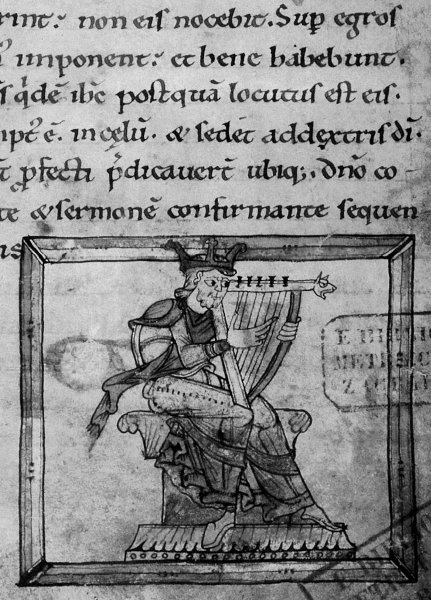 rint: non eis nocebit. Sup egros
imponent: et bene habebunt.
s q̇dē ih̄c postquā locutus est eis.
ptꝰ ē. in celū. & sedet ad dextris dī.
profecti p̄dicavert̄ ubiq;. dn̄o co-
te & sermonē confirmante sequen
is
E BIBLIO
METR
ZAG